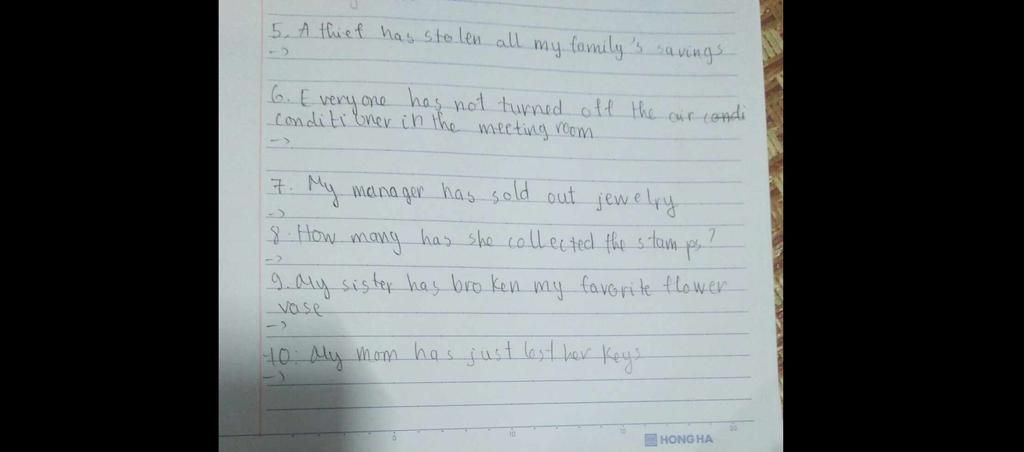 5. A thief has stolen all my family's savings
->
6. Everyone has not turned off the air condi
conditioner in the meeting room
->
7. My manager has sold out jewelry
->
8. How many has she collected the stamps?
->
9. My sister has broken my favorite flower
vase
->
10. My mom has just lost her keys
->
0 10 20
HONG HA